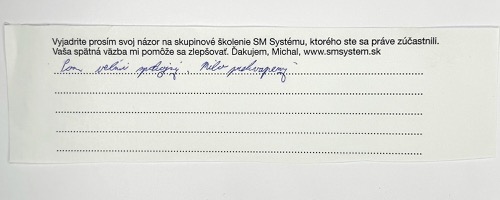 Vyjadrite prosím svoj názor na skupinové školenie SM Systému, ktorého ste sa práve zúčastnili.
Vaša spätná väzba mi pomôže sa zlepšovať. Ďakujem, Michal, www.smsystem.sk
Som veľmi spokojný, milo prekvapený